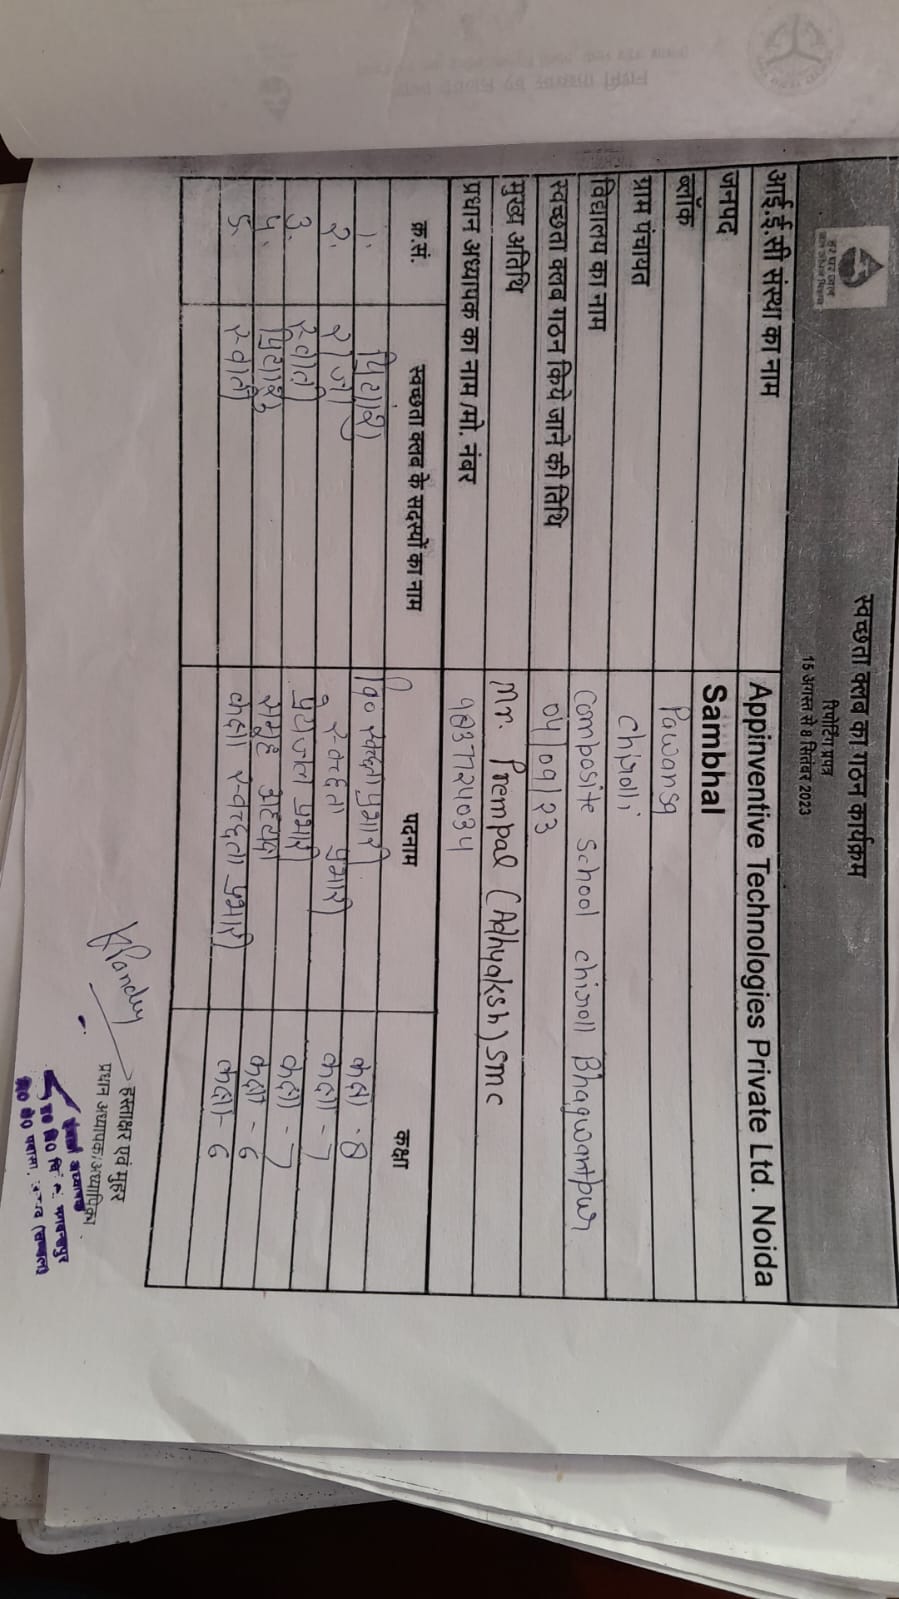 स्वच्छता क्लब का गठन कार्यक्रम
रिपोर्टिंग प्रपत्र
15 अगस्त से 8 सितंबर 2023
आई.ई.सी संस्था का नाम Appinventive Technologies Private Ltd. Noida
जनपद Sambhal
ब्लॉक Pawansa
ग्राम पंचायत Chirolli
विद्यालय का नाम Composite School chiroll Bhagwantpur
स्वच्छता क्लब गठन किये जाने की तिथि 04/09/23
मुख्य अतिथि Mr. Prempal (Adhyaksh) SMC
प्रधान अध्यापक का नाम /मो. नंबर 9837724034
क्र.सं. स्वच्छता क्लब के सदस्यों का नाम पदनाम कक्षा
१. कक्षा - 8
२. स्वच्छता प्रभारी कक्षा - 7
३. स्वाती पेयजल प्रभारी कक्षा - 7
४. समूह अध्यक्ष कक्षा - 6
५. स्वाती कक्षा स्वच्छता प्रभारी कक्षा - 6
हस्ताक्षर एवं मुहर
प्रधान अध्यापक/अध्यापिका